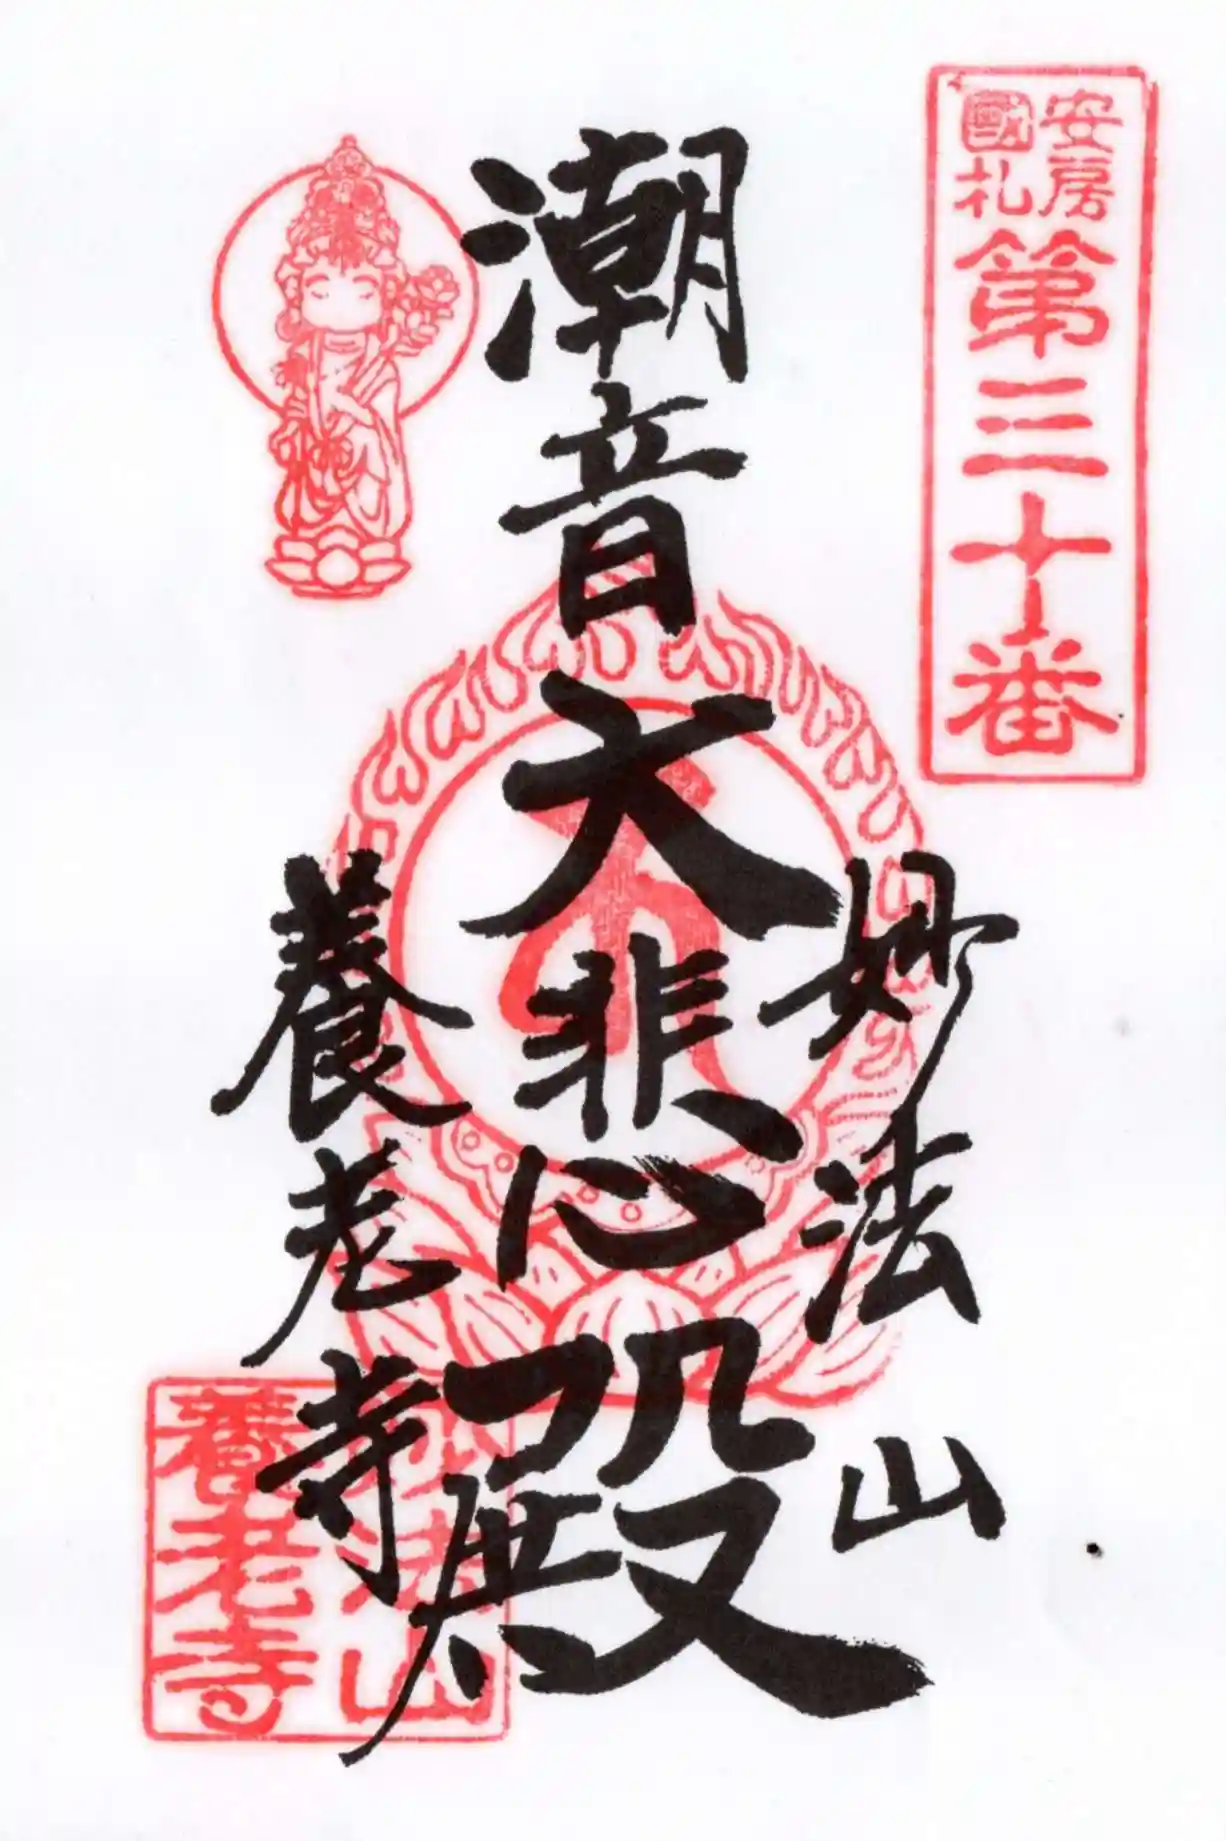 安房
國札
第三十番
妙法山
潮音
大悲心殿
養老寺
妙法山
養老寺